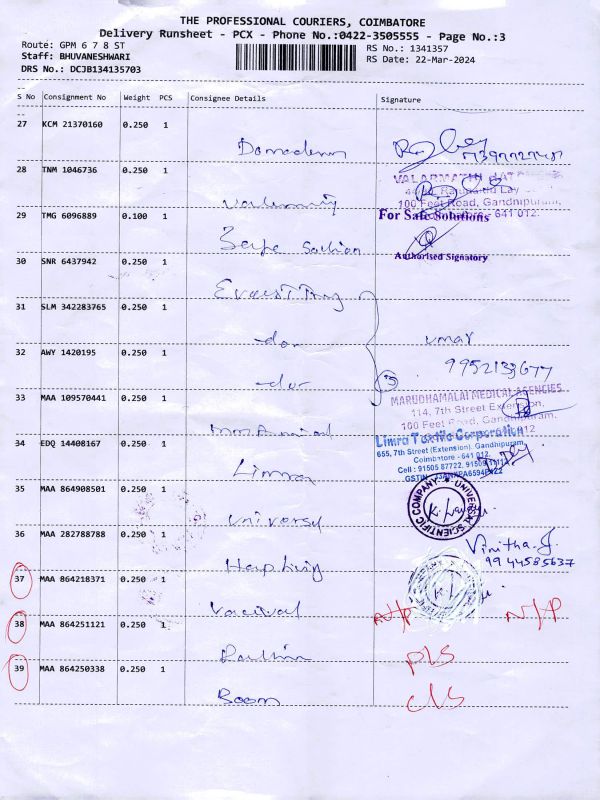 THE PROFESSIONAL COURIERS, COIMBATORE
Delivery Runsheet - PCX - Phone No.:0422-3505555 - Page No.:3
Route: GPM 6 7 8 ST
RS No.: 1341357
Staff: BHUVANESHWARI
RS Date: 22-Mar-2024
DRS No.: DCJB134135703
S No Consignment No Weight PCS Consignee Details Signature
27 KCM 21370160 0.250 1
28 TNM 1046736 0.250 1
100 Feet Road, Gandhipuram,
29 TMG 6096889 0.100 1
641 012.
For Safe Solutions
Authorised Signatory
30 SNR 6437942 0.250 1
31 SLM 342283765 0.250 1
umar
32 AWY 1420195 0.250 1
9952133677
33 MAA 109570441 0.250 1
MARUDHAMALAI MEDICAL AGENCIES
114, 7th Street Extension,
100 Feet Road, Gandhipuram,
34 EDQ 14408167 0.250 1
Limra
Limra Textile Corporation
655, 7th Street (Extension), Gandhipuram
Coimbatore - 641 012.
Cell : 91505 87722,
35 MAA 864908501 0.250 1
UNIVERSAL SCIENTIFIC COMPANY
36 MAA 282788788 0.250 1
Vinitha.J.
99 44585637
37 MAA 864218371 0.250 1
N/P
38 MAA 864251121 0.250 1
D/S
39 MAA 864250338 0.250 1
Boom
C/S